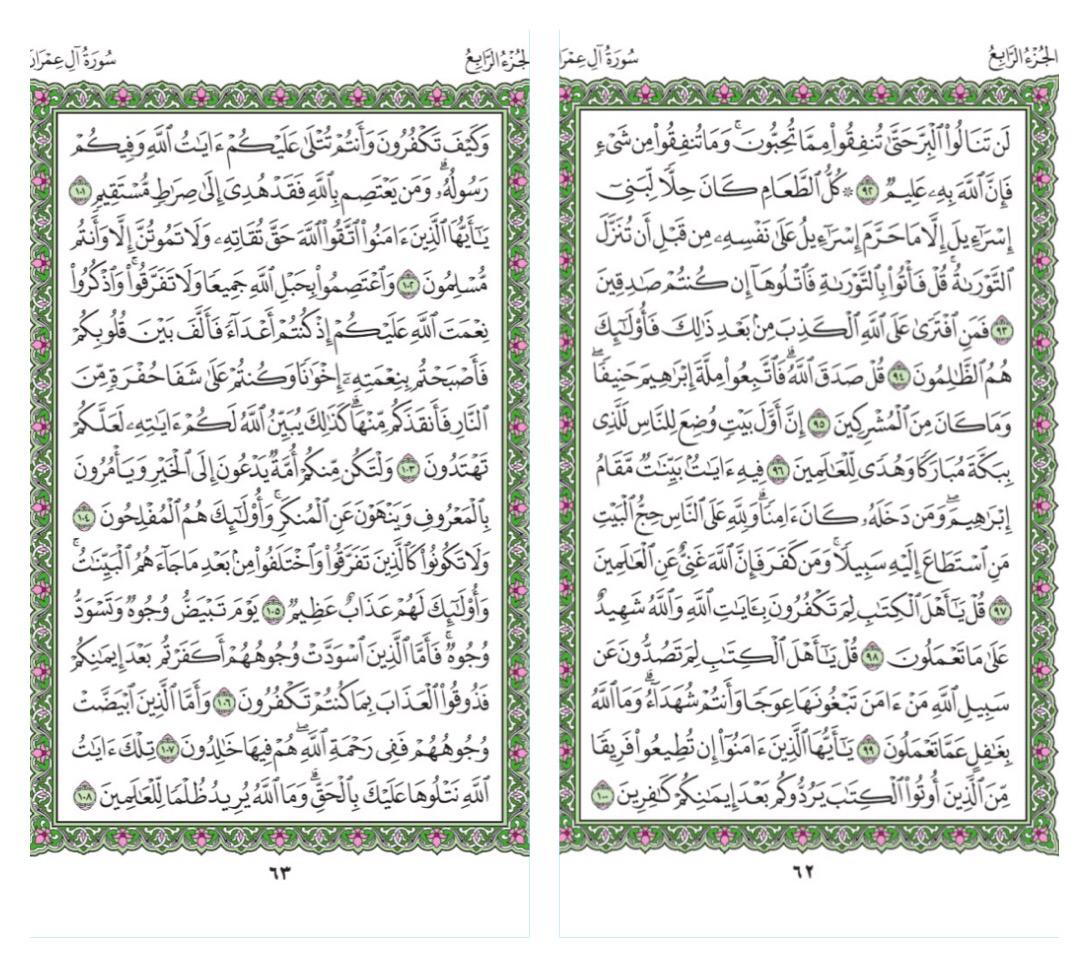 الجُزْءُ الرَّابِعُ
سُورَةُ آلِ عِمْرَان
لَن تَنَالُوا۟ ٱلْبِرَّ حَتَّىٰ تُنفِقُوا۟ مِمَّا تُحِبُّونَ ۚ وَمَا تُنفِقُوا۟ مِن شَىْءٍ
فَإِنَّ ٱللَّهَ بِهِۦ عَلِيمٌ ٩٢ ۞ كُلُّ ٱلطَّعَامِ كَانَ حِلًّا لِّبَنِىٓ
إِسْرَٰٓءِيلَ إِلَّا مَا حَرَّمَ إِسْرَٰٓءِيلُ عَلَىٰ نَفْسِهِۦ مِن قَبْلِ أَن تُنَزَّلَ
ٱلتَّوْرَىٰةُ ۗ قُلْ فَأْتُوا۟ بِٱلتَّوْرَىٰةِ فَٱتْلُوهَآ إِن كُنتُمْ صَٰدِقِينَ
٩٣ فَمَنِ ٱفْتَرَىٰ عَلَى ٱللَّهِ ٱلْكَذِبَ مِنۢ بَعْدِ ذَٰلِكَ فَأُو۟لَٰٓئِكَ
هُمُ ٱلظَّٰلِمُونَ ٩٤ قُلْ صَدَقَ ٱللَّهُ ۗ فَٱتَّبِعُوا۟ مِلَّةَ إِبْرَٰهِيمَ حَنِيفًا ۖ
وَمَا كَانَ مِنَ ٱلْمُشْرِكِينَ ٩٥ إِنَّ أَوَّلَ بَيْتٍ وُضِعَ لِلنَّاسِ لَلَّذِى
بِبَكَّةَ مُبَارَكًا وَهُدًى لِّلْعَٰلَمِينَ ٩٦ فِيهِ ءَايَٰتٌۢ بَيِّنَٰتٌ مَّقَامُ
إِبْرَٰهِيمَ ۖ وَمَن دَخَلَهُۥ كَانَ ءَامِنًا ۗ وَلِلَّهِ عَلَى ٱلنَّاسِ حِجُّ ٱلْبَيْتِ
مَنِ ٱسْتَطَاعَ إِلَيْهِ سَبِيلًا ۚ وَمَن كَفَرَ فَإِنَّ ٱللَّهَ غَنِىٌّ عَنِ ٱلْعَٰلَمِينَ
٩٧ قُلْ يَٰٓأَهْلَ ٱلْكِتَٰبِ لِمَ تَكْفُرُونَ بِـَٔايَٰتِ ٱللَّهِ وَٱللَّهُ شَهِيدٌ
عَلَىٰ مَا تَعْمَلُونَ ٩٨ قُلْ يَٰٓأَهْلَ ٱلْكِتَٰبِ لِمَ تَصُدُّونَ عَن
سَبِيلِ ٱللَّهِ مَنْ ءَامَنَ تَبْغُونَهَا عِوَجًا وَأَنتُمْ شُهَدَآءُ ۗ وَمَا ٱللَّهُ
بِغَٰفِلٍ عَمَّا تَعْمَلُونَ ٩٩ يَٰٓأَيُّهَا ٱلَّذِينَ ءَامَنُوٓا۟ إِن تُطِيعُوا۟ فَرِيقًا
مِّنَ ٱلَّذِينَ أُوتُوا۟ ٱلْكِتَٰبَ يَرُدُّوكُم بَعْدَ إِيمَٰنِكُمْ كَٰفِرِينَ ١٠٠
٦٢
الجُزْءُ الرَّابِعُ
سُورَةُ آلِ عِمْرَان
وَكَيْفَ تَكْفُرُونَ وَأَنتُمْ تُتْلَىٰ عَلَيْكُمْ ءَايَٰتُ ٱللَّهِ وَفِيكُمْ
رَسُولُهُۥ ۗ وَمَن يَعْتَصِم بِٱللَّهِ فَقَدْ هُدِىَ إِلَىٰ صِرَٰطٍ مُّسْتَقِيمٍ ١٠١
يَٰٓأَيُّهَا ٱلَّذِينَ ءَامَنُوا۟ ٱتَّقُوا۟ ٱللَّهَ حَقَّ تُقَاتِهِۦ وَلَا تَمُوتُنَّ إِلَّا وَأَنتُم
مُّسْلِمُونَ ١٠٢ وَٱعْتَصِمُوا۟ بِحَبْلِ ٱللَّهِ جَمِيعًا وَلَا تَفَرَّقُوا۟ ۚ وَٱذْكُرُوا۟
نِعْمَتَ ٱللَّهِ عَلَيْكُمْ إِذْ كُنتُمْ أَعْدَآءً فَأَلَّفَ بَيْنَ قُلُوبِكُمْ
فَأَصْبَحْتُم بِنِعْمَتِهِۦٓ إِخْوَٰنًا وَكُنتُمْ عَلَىٰ شَفَا حُفْرَةٍ مِّنَ
ٱلنَّارِ فَأَنقَذَكُم مِّنْهَا ۗ كَذَٰلِكَ يُبَيِّنُ ٱللَّهُ لَكُمْ ءَايَٰتِهِۦ لَعَلَّكُمْ
تَهْتَدُونَ ١٠٣ وَلْتَكُن مِّنكُمْ أُمَّةٌ يَدْعُونَ إِلَى ٱلْخَيْرِ وَيَأْمُرُونَ
بِٱلْمَعْرُوفِ وَيَنْهَوْنَ عَنِ ٱلْمُنكَرِ ۚ وَأُو۟لَٰٓئِكَ هُمُ ٱلْمُفْلِحُونَ ١٠٤
وَلَا تَكُونُوا۟ كَٱلَّذِينَ تَفَرَّقُوا۟ وَٱخْتَلَفُوا۟ مِنۢ بَعْدِ مَا جَآءَهُمُ ٱلْبَيِّنَٰتُ ۚ
وَأُو۟لَٰٓئِكَ لَهُمْ عَذَابٌ عَظِيمٌ ١٠٥ يَوْمَ تَبْيَضُّ وُجُوهٌ وَتَسْوَدُّ
وُجُوهٌ ۚ فَأَمَّا ٱلَّذِينَ ٱسْوَدَّتْ وُجُوهُهُمْ أَكَفَرْتُم بَعْدَ إِيمَٰنِكُمْ
فَذُوقُوا۟ ٱلْعَذَابَ بِمَا كُنتُمْ تَكْفُرُونَ ١٠٦ وَأَمَّا ٱلَّذِينَ ٱبْيَضَّتْ
وُجُوهُهُمْ فَفِى رَحْمَةِ ٱللَّهِ ۖ هُمْ فِيهَا خَٰلِدُونَ ١٠٧ تِلْكَ ءَايَٰتُ
ٱللَّهِ نَتْلُوهَا عَلَيْكَ بِٱلْحَقِّ ۗ وَمَا ٱللَّهُ يُرِيدُ ظُلْمًا لِّلْعَٰلَمِينَ ١٠٨
٦٣